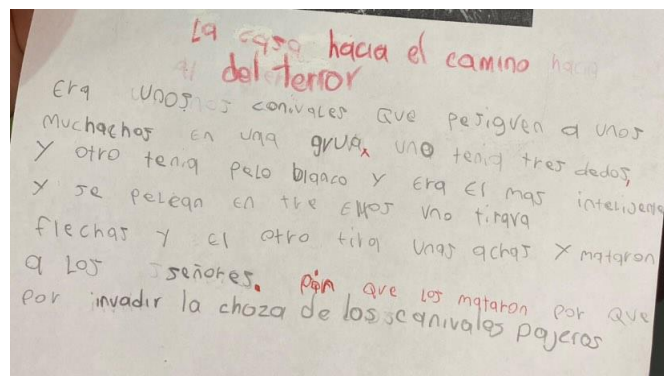 La casa hacia el camino
del terror
Era unos conivales que pesiguen a unos
muchachos en una grua, uno tenia tres dedos,
y otro tenia pelo blanco y era el mas inteligente
y se pelean en tre ellos uno tirava
flechas y el otro tira unas achas y mataron
a los señores. que los mataron por que
por invadir la choza de los canivales pajeros